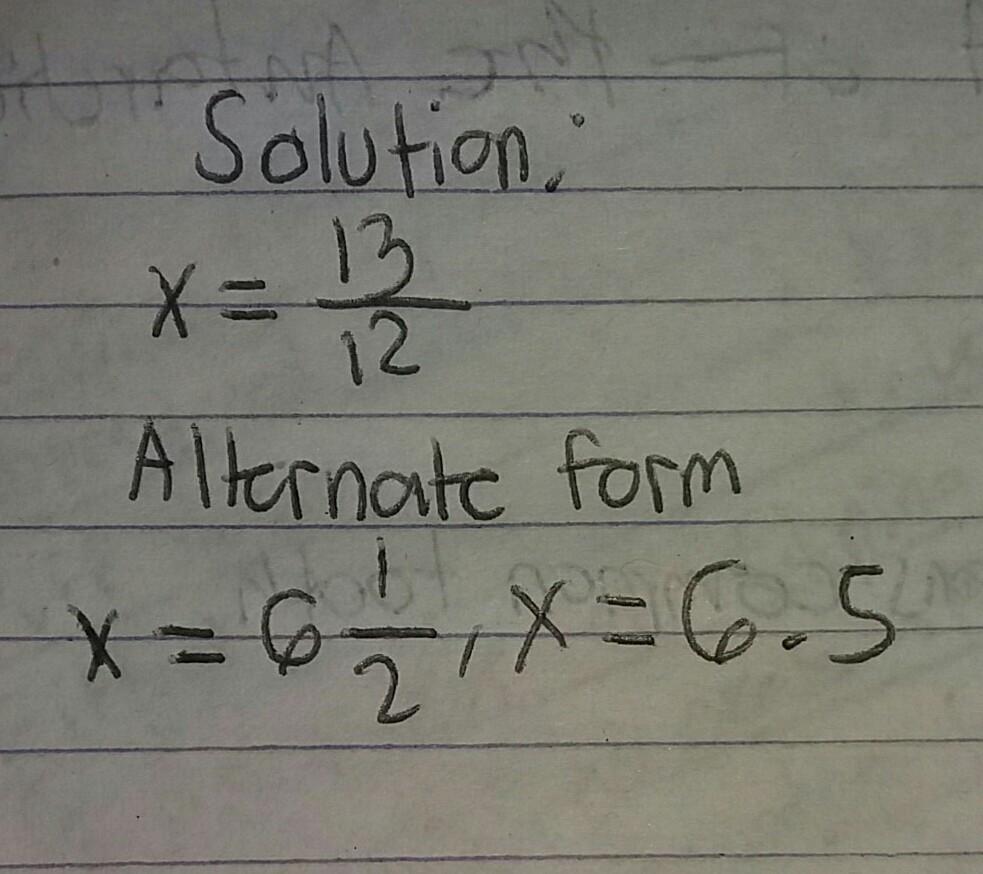 Solution:
x = 13/12
Alternate form
x = 6 1/2, x = 6.5